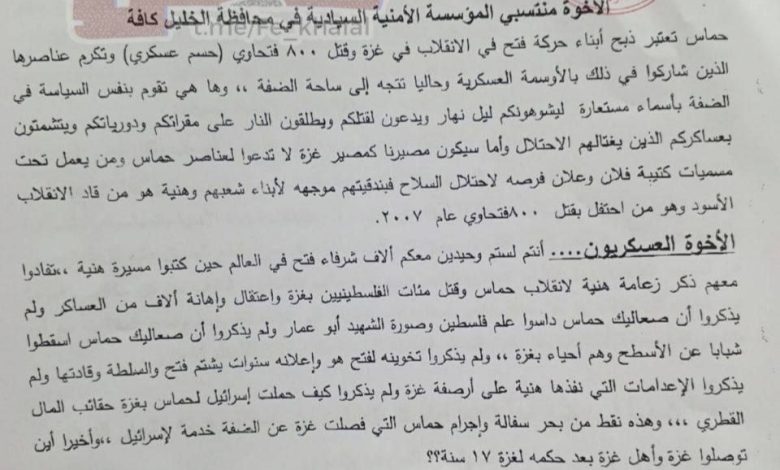 الأخوة منتسبي المؤسسة الأمنية السيادية في محافظة الخليل كافة
حماس تعتبر ذبح أبناء حركة فتح في الانقلاب في غزة وقتل ٨٠٠ فتحاوي (حسم عسكري) وتكرم عناصرها
الذين شاركوا في ذلك بالأوسمة العسكرية وحاليا تتجه إلى ساحة الضفة ،، وها هي تقوم بنفس السياسة في
الضفة بأسماء مستعارة ليشوهونكم ليل نهار ويدعون لقتلكم ويطلقون النار على مقراتكم ودورياتكم ويتشمتون
بعساكركم الذين يغتالهم الاحتلال وأما سيكون مصيرنا كمصير غزة لا تدعوا لعناصر حماس ومن يعمل تحت
مسميات كتيبة فلان وعلان فرصه لاحتلال السلاح فبندقيتهم موجهه لأبناء شعبهم وهنية هو من قاد الانقلاب
الأسود وهو من احتفل بقتل ٨٠٠فتحاوي عام ٢٠٠٧.
الأخوة العسكريون.... أنتم لستم وحيدين معكم ألاف شرفاء فتح في العالم حين كتبوا مسيرة هنية ،،تفادوا
معهم ذكر زعامة هنية لانقلاب حماس وقتل مئات الفلسطينيين بغزة واعتقال وإهانة ألاف من العساكر ولم
يذكروا أن صعاليك حماس داسوا علم فلسطين وصورة الشهيد أبو عمار ولم يذكروا أن صعاليك حماس اسقطوا
شبابا عن الأسطح وهم أحياء بغزة ،، ولم يذكروا تخوينه لفتح هو وإعلانه سنوات يشتم فتح والسلطة وقادتها ولم
يذكروا الإعدامات التي نفذها هنية على أرصفة غزة ولم يذكروا كيف حملت إسرائيل لحماس بغزة حقائب المال
القطري ،،، وهذه نقط من بحر سفالة وإجرام حماس التي فصلت غزة عن الضفة خدمة لإسرائيل ،،وأخيرا أين
توصلوا غزة وأهل غزة بعد حكمه لغزة ١٧ سنة؟؟